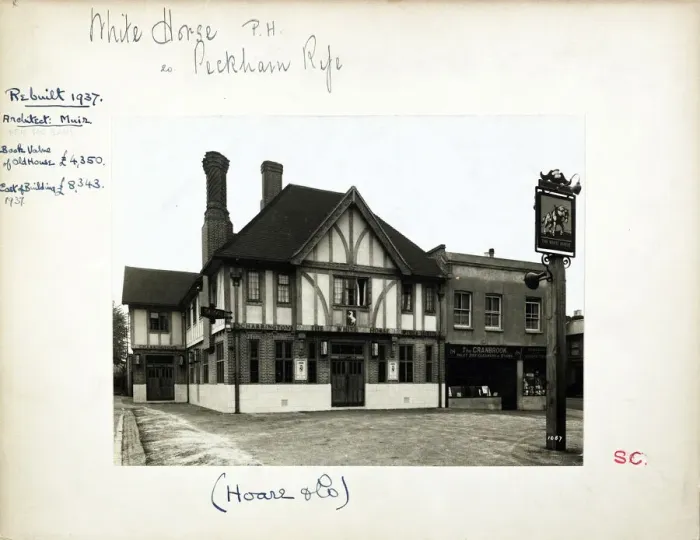 White Horse P.H.
20 Peckham Rye
Rebuilt 1937.
Architect: Muir
Book Value
of Old House £4,350.
Cost of Building £8,343.
1937
THE WHITE HORSE
THE WHITE HORSE
The CRANBROOK
1087
SC.
(Hoare & Co)